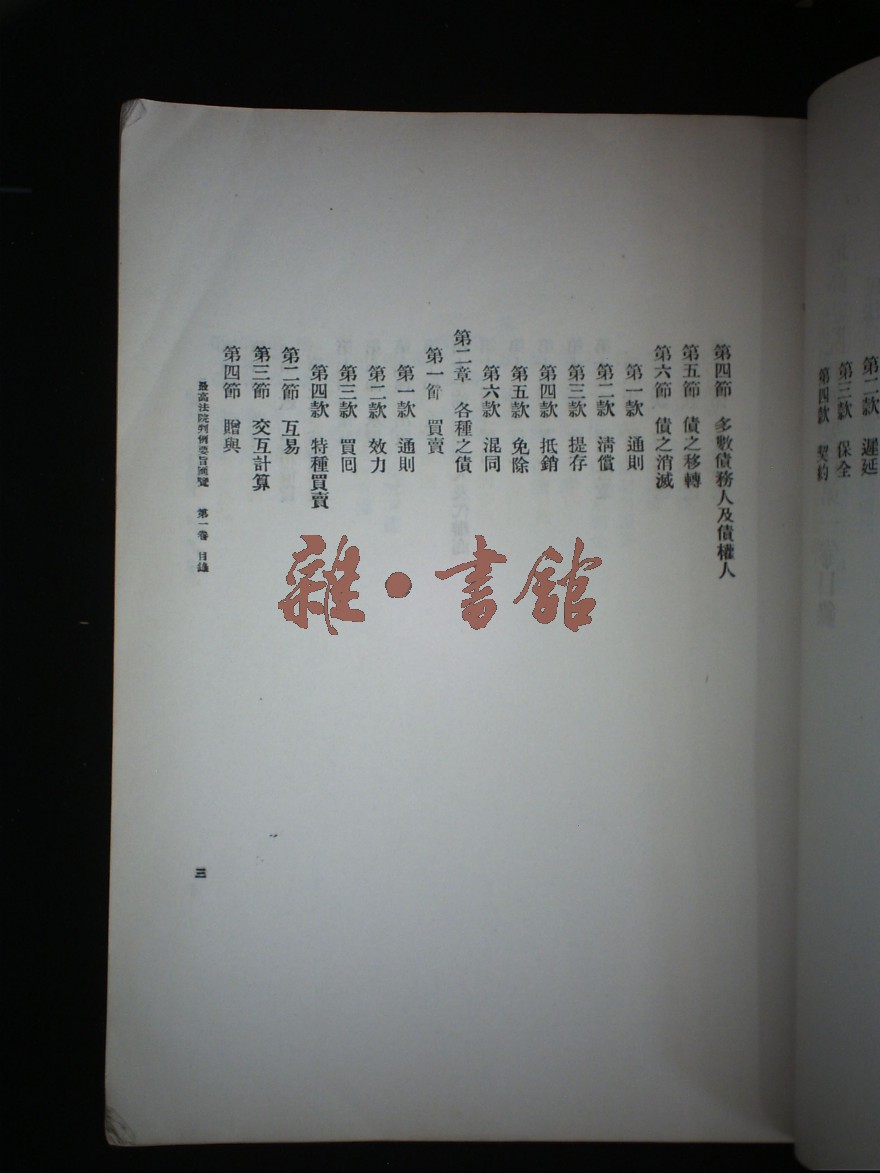 第二款 遲延
第三款 保全
第四款 契約
第四節 多數債務人及債權人
第五節 債之移轉
第六節 債之消滅
第一款 通則
第二款 淸償
第三款 提存
第四款 抵銷
第五款 免除
第六款 混同
第二章 各種之債
第一節 買賣
第一款 通則
第二款 效力
第三款 買回
第四款 特種買賣
第二節 互易
第三節 交互計算
第四節 贈與
最高法院判例要旨匯覽 第一卷 目錄
三
雜·書館